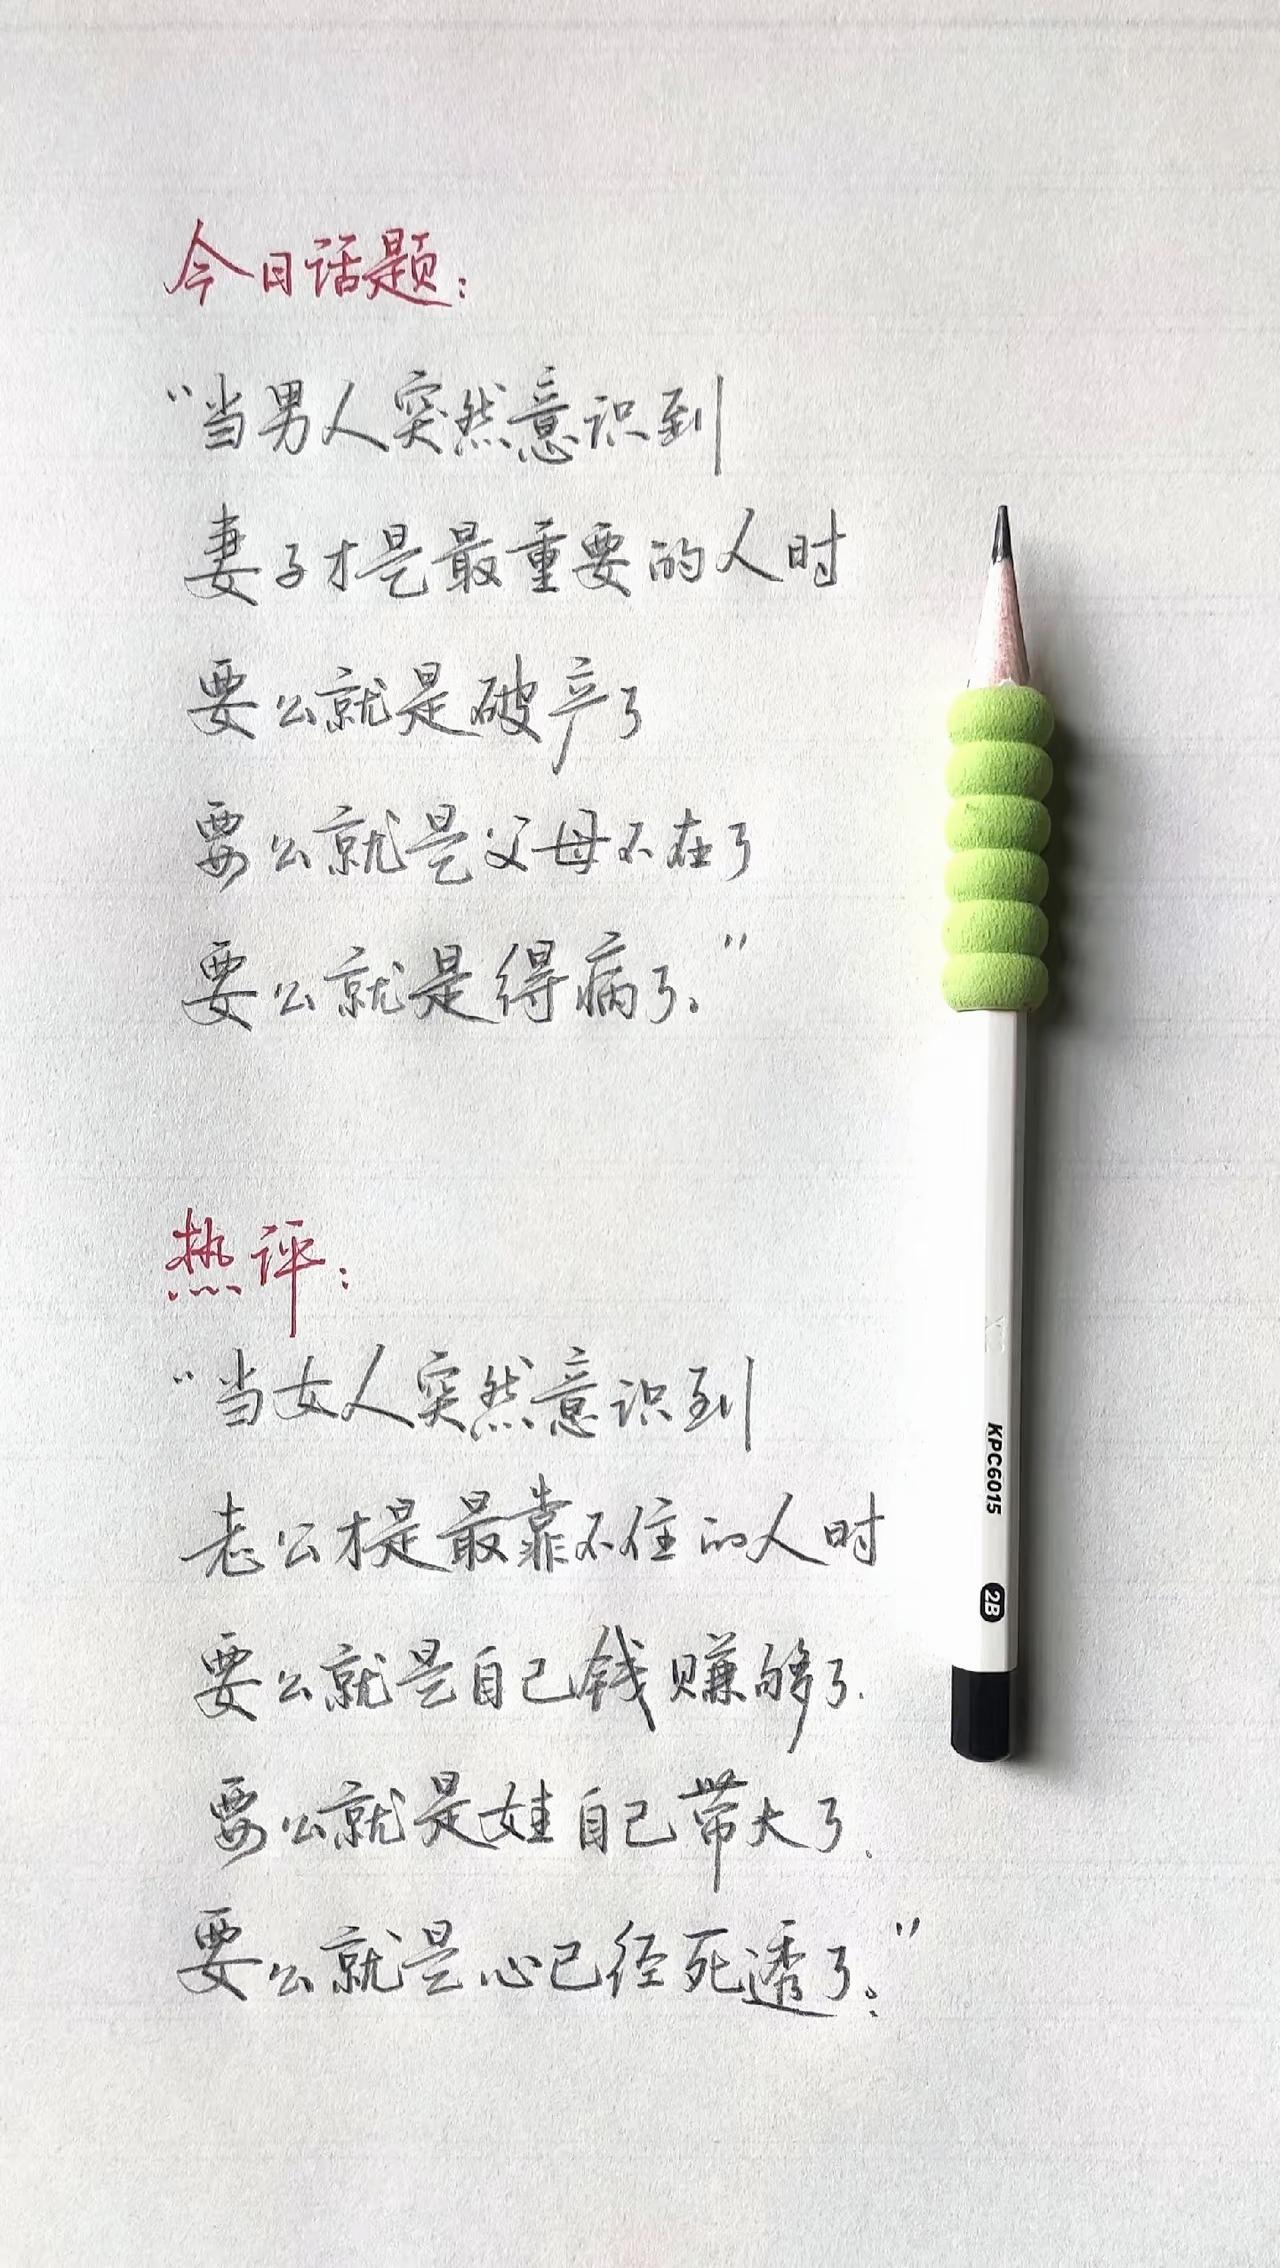 今日话题：
“当男人突然意识到
妻子才是最重要的人时
要么就是破产了
要么就是父母不在了
要么就是得病了。”
热评：
“当女人突然意识到
老公才是最靠不住的人时
要么就是自己钱赚够了.
要么就是娃自己带大了.
要么就是心已经死透了。”
KPC6015
2B